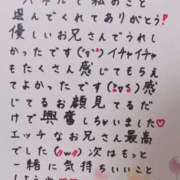 選んでくれてありがとう!
優しいお兄さんでうれし
かったです(°▽°)イチャイチャ
もたくさん感じてもらえ
てよかったです(≧ε≦)感
じてるお顔見てるだ
けで興奮しちゃいました♥
エッチなお兄さん最高
でした(≧ω≦)次はもっと
一緒に気持ちいいこと